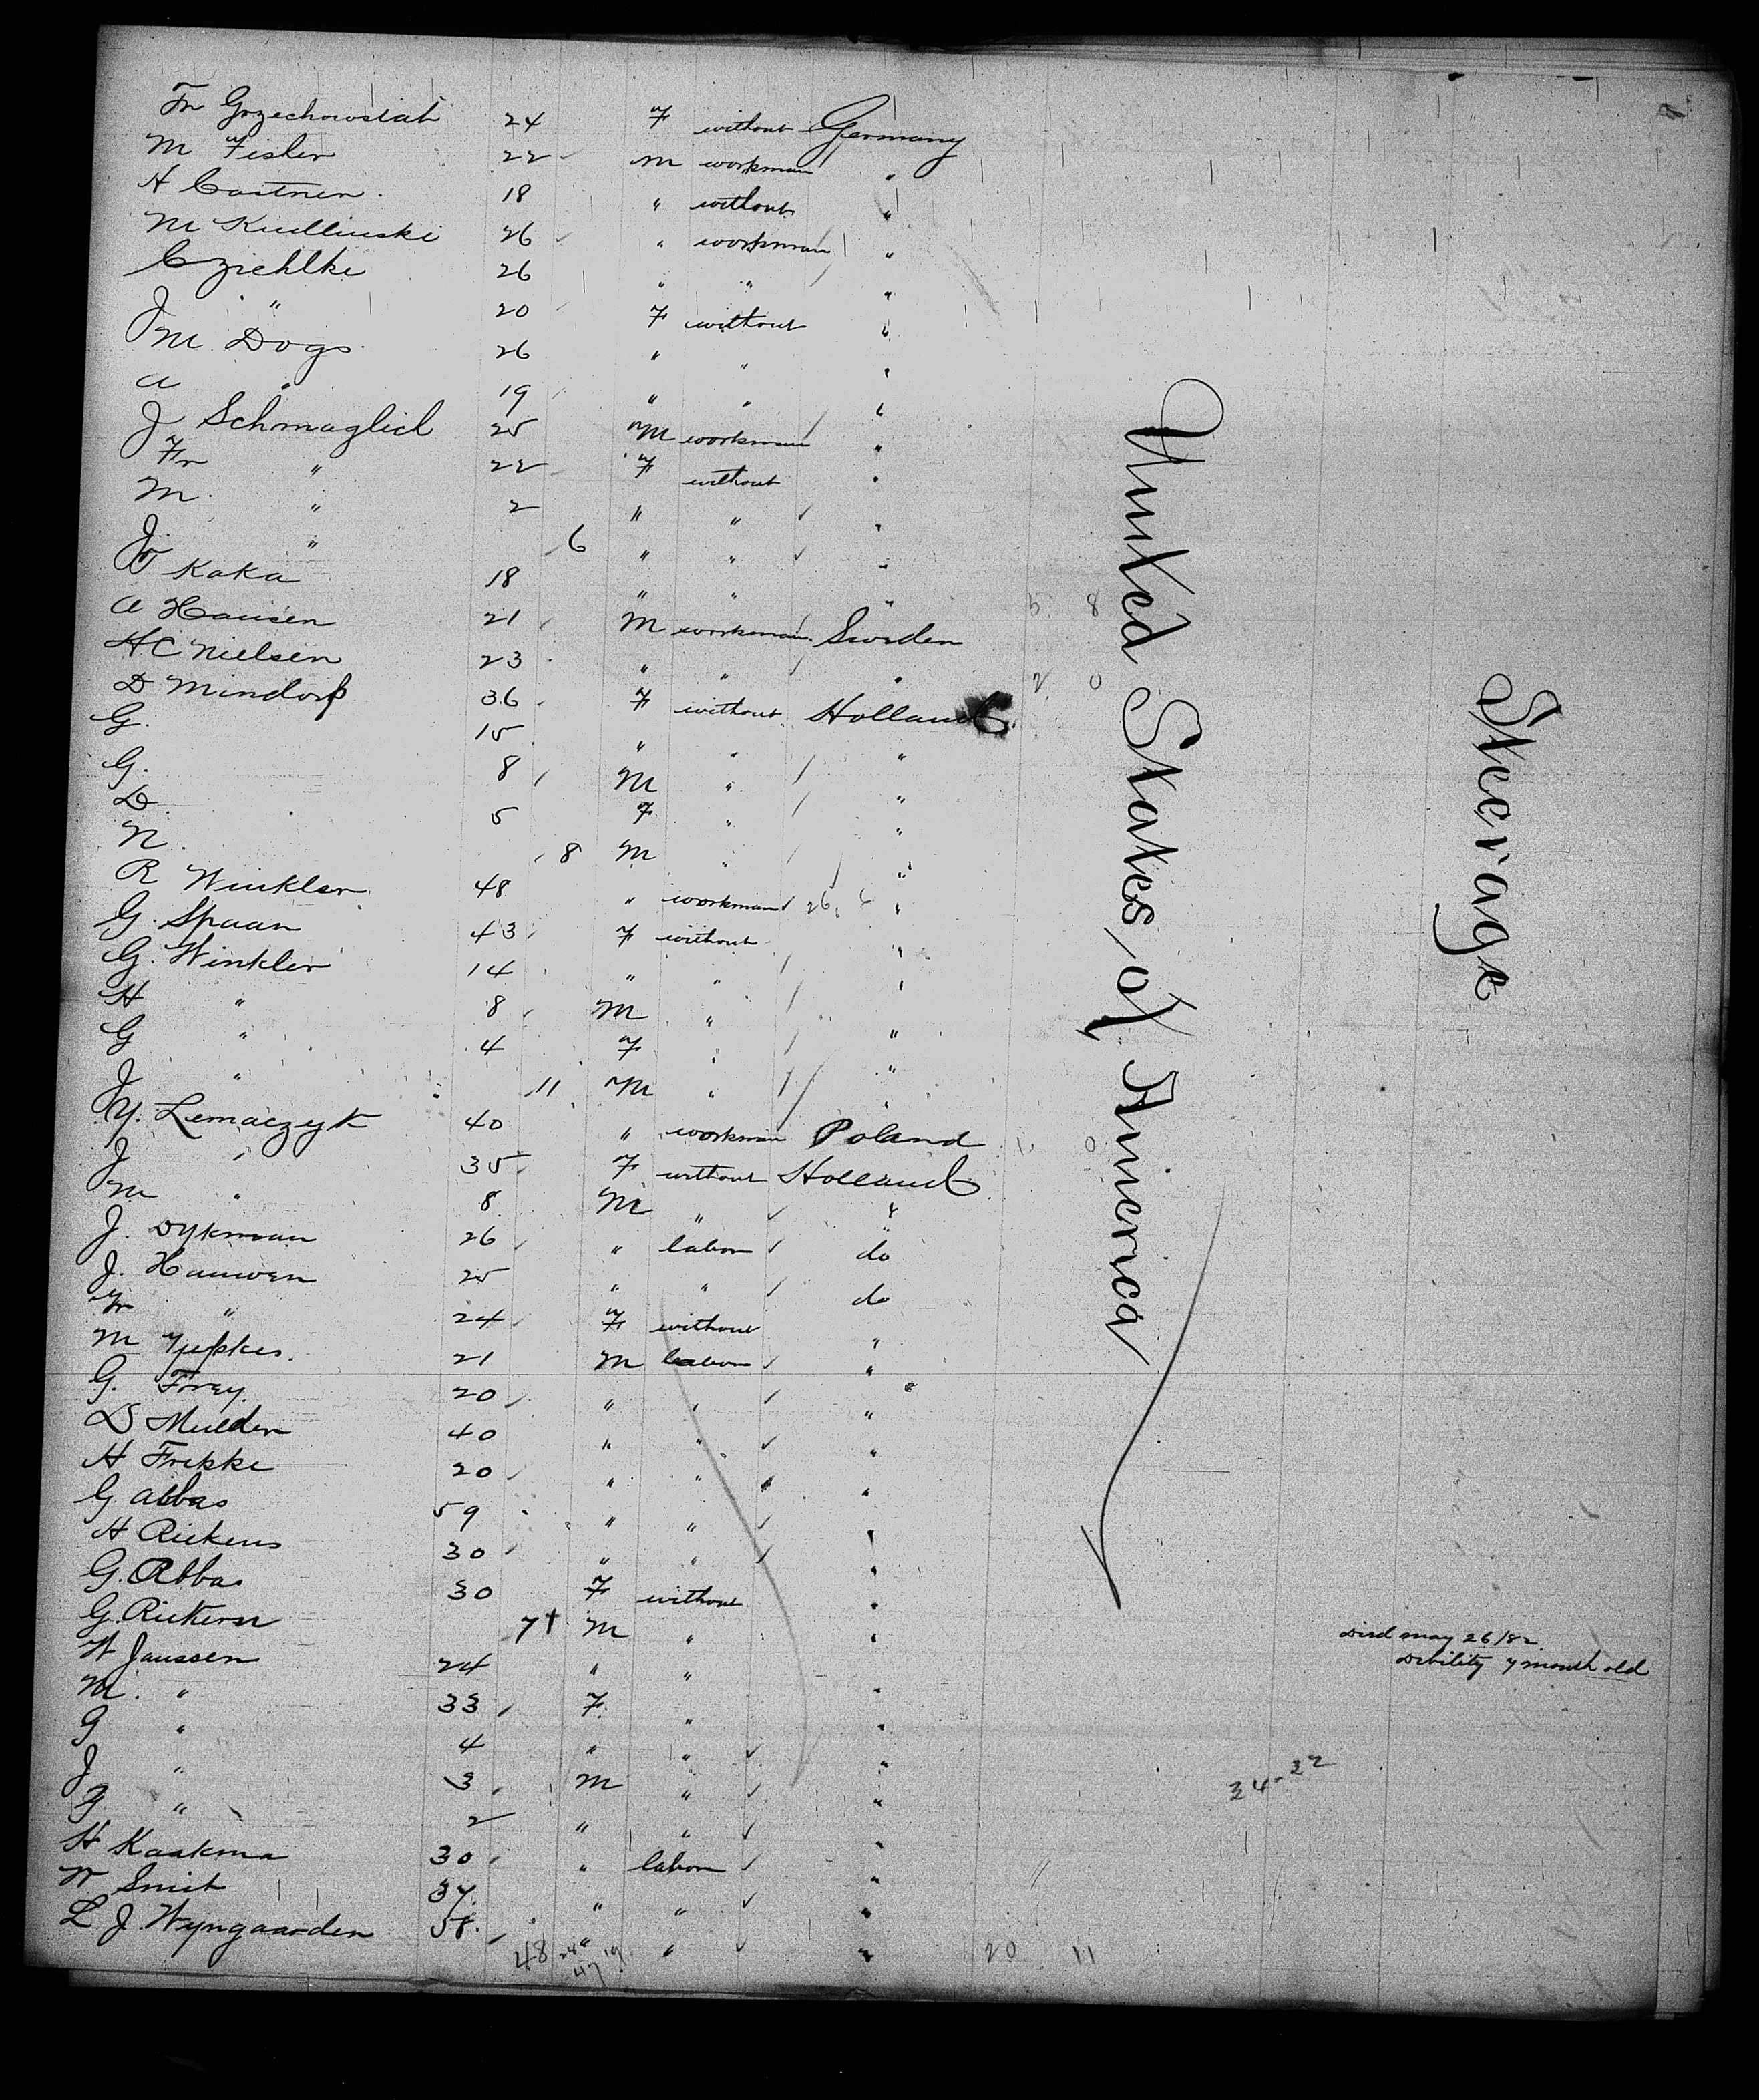 Fr Grzechowslat 24 F without Germany
M Fisher 22 M workman "
H Castner 18 " without "
M Kudlinski 26 " workman "
C Ziehlke 26 " " "
J " 20 F without "
M Dogs 26 " " "
A " 19 " " "
J Schmaglied 25 M workman "
Fr " 22 F without "
M " 2 " " "
J " 6 " " "
V Kaka 18 " " "
A Hansen 21 M workman Sweden
HC Nielsen 23 " " "
D Mindorf 36 F without Holland
G. 15 " " "
G. 8 M " "
D 5 F " "
N. 8 M " "
R Winkler 48 " workman "
G. Spaan 43 F without "
G. Winkler 14 " " "
H " 8 M " "
G " 4 F " "
J " 11 M " "
Y. Lemaczyk 40 " workman Poland
J " 35 F without Holland
M " 8 M " "
J. Dykman 26 " labor do
J. Hauwen 25 " " do
Fr " 24 F without "
M Jepkes. 21 M labor "
G. Frey 20 " " "
D Mulder 40 " " "
H Frikke 20 " " "
G Abbas 59 " " "
H Rickens 30 " " "
G. Abbas 30 F without "
G. Rickersn 7† M " "
Died May 26/82.
Debility 7 month old
W Janssen 24 " " "
M. " 33 F. " "
G " 4 " " "
J " 3 M " "
G " 2 " " "
34-22
H Kaakma 30 " labor "
W Smit 37. " " "
L J. Wyngaarden 58. " " "
48 24 19 20 11
47
United States of America
Steerage